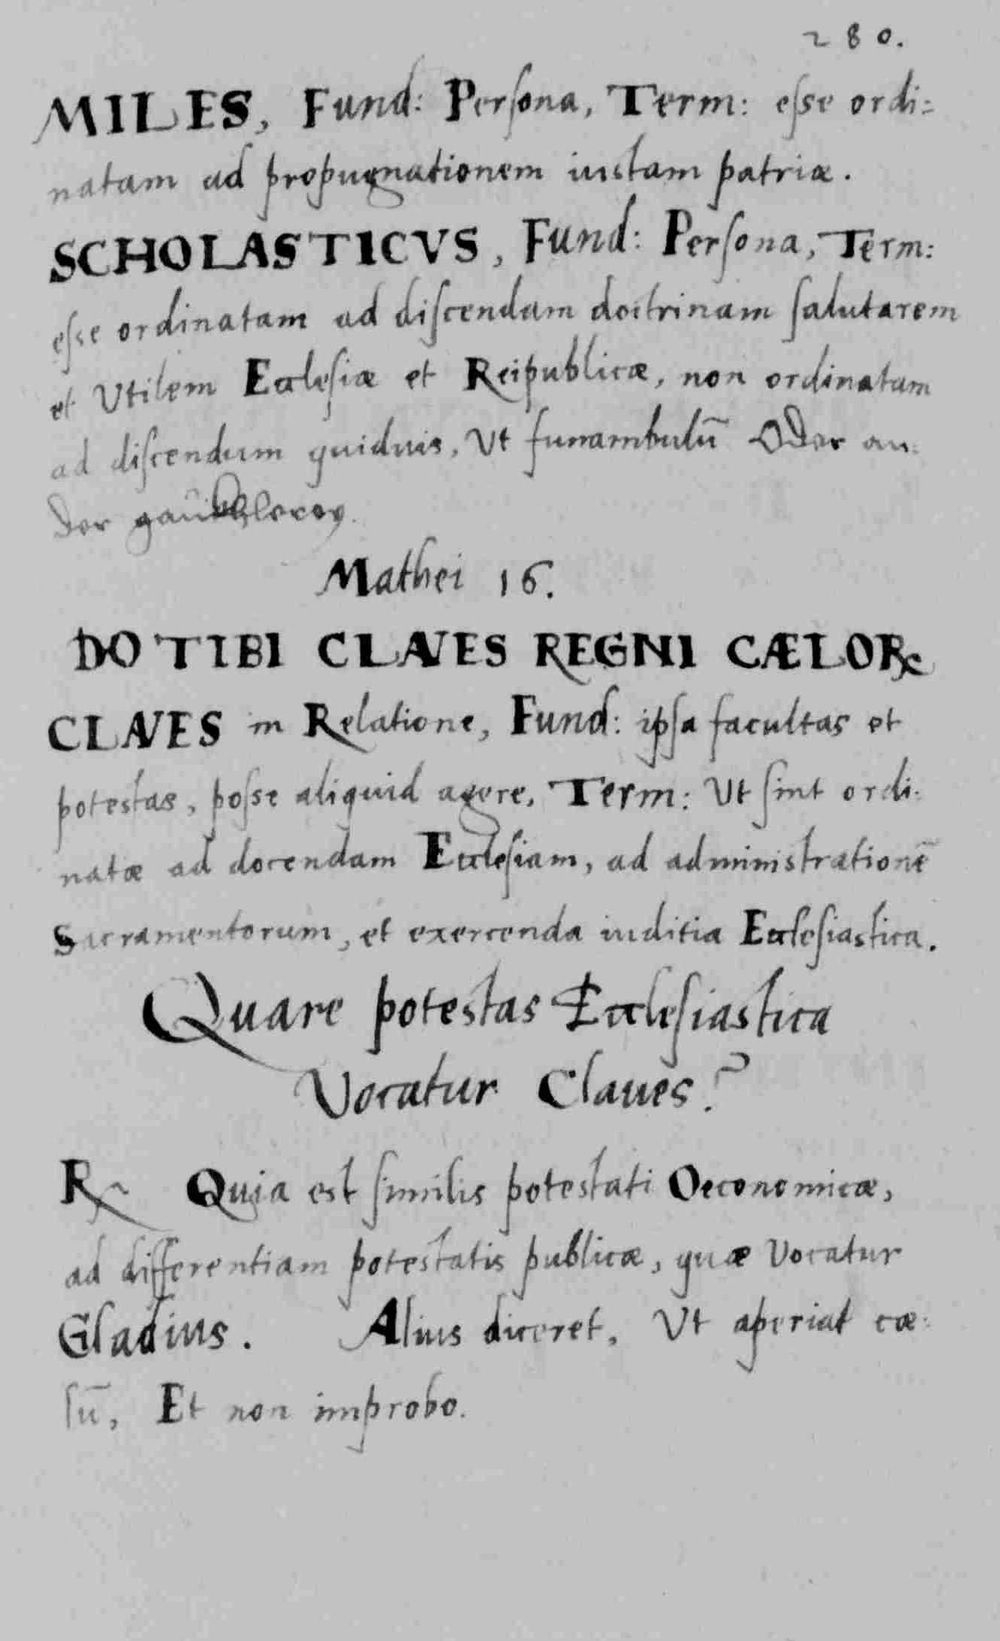 280.
MILES, Fund: Persona, Term: esse ordi=
natam ad propugnationem iustam patriæ.
SCHOLASTICVS, Fund: Persona, Term:
esse ordinatam ad discendam doctrinam salutarem
et Vtilem Ecclesiæ et Reipublicæ, non ordinatam
ad discendum quiduis, Vt funambulū Oder an:
der gaüchlerey.
Mathei 16.
DO TIBI CLAVES REGNI CÆLORꝝ
CLAVES in Relatione, Fund: ipsa facultas et
potestas, posse aliquid agere, Term: Vt sint ordi:
natæ ad docendam Ecclesiam, ad administrationē
Sacramentorum, et exercenda iuditia Ecclesiastica.
Quare potestas Ecclesiastica
Vocatur Claues?
℞ Quia est similis potestati Oeconomicæ,
ad differentiam potestatis publicæ, quæ Vocatur
Gladius. Alius diceret, Vt aperiat cæ:
lū, Et non improbo.